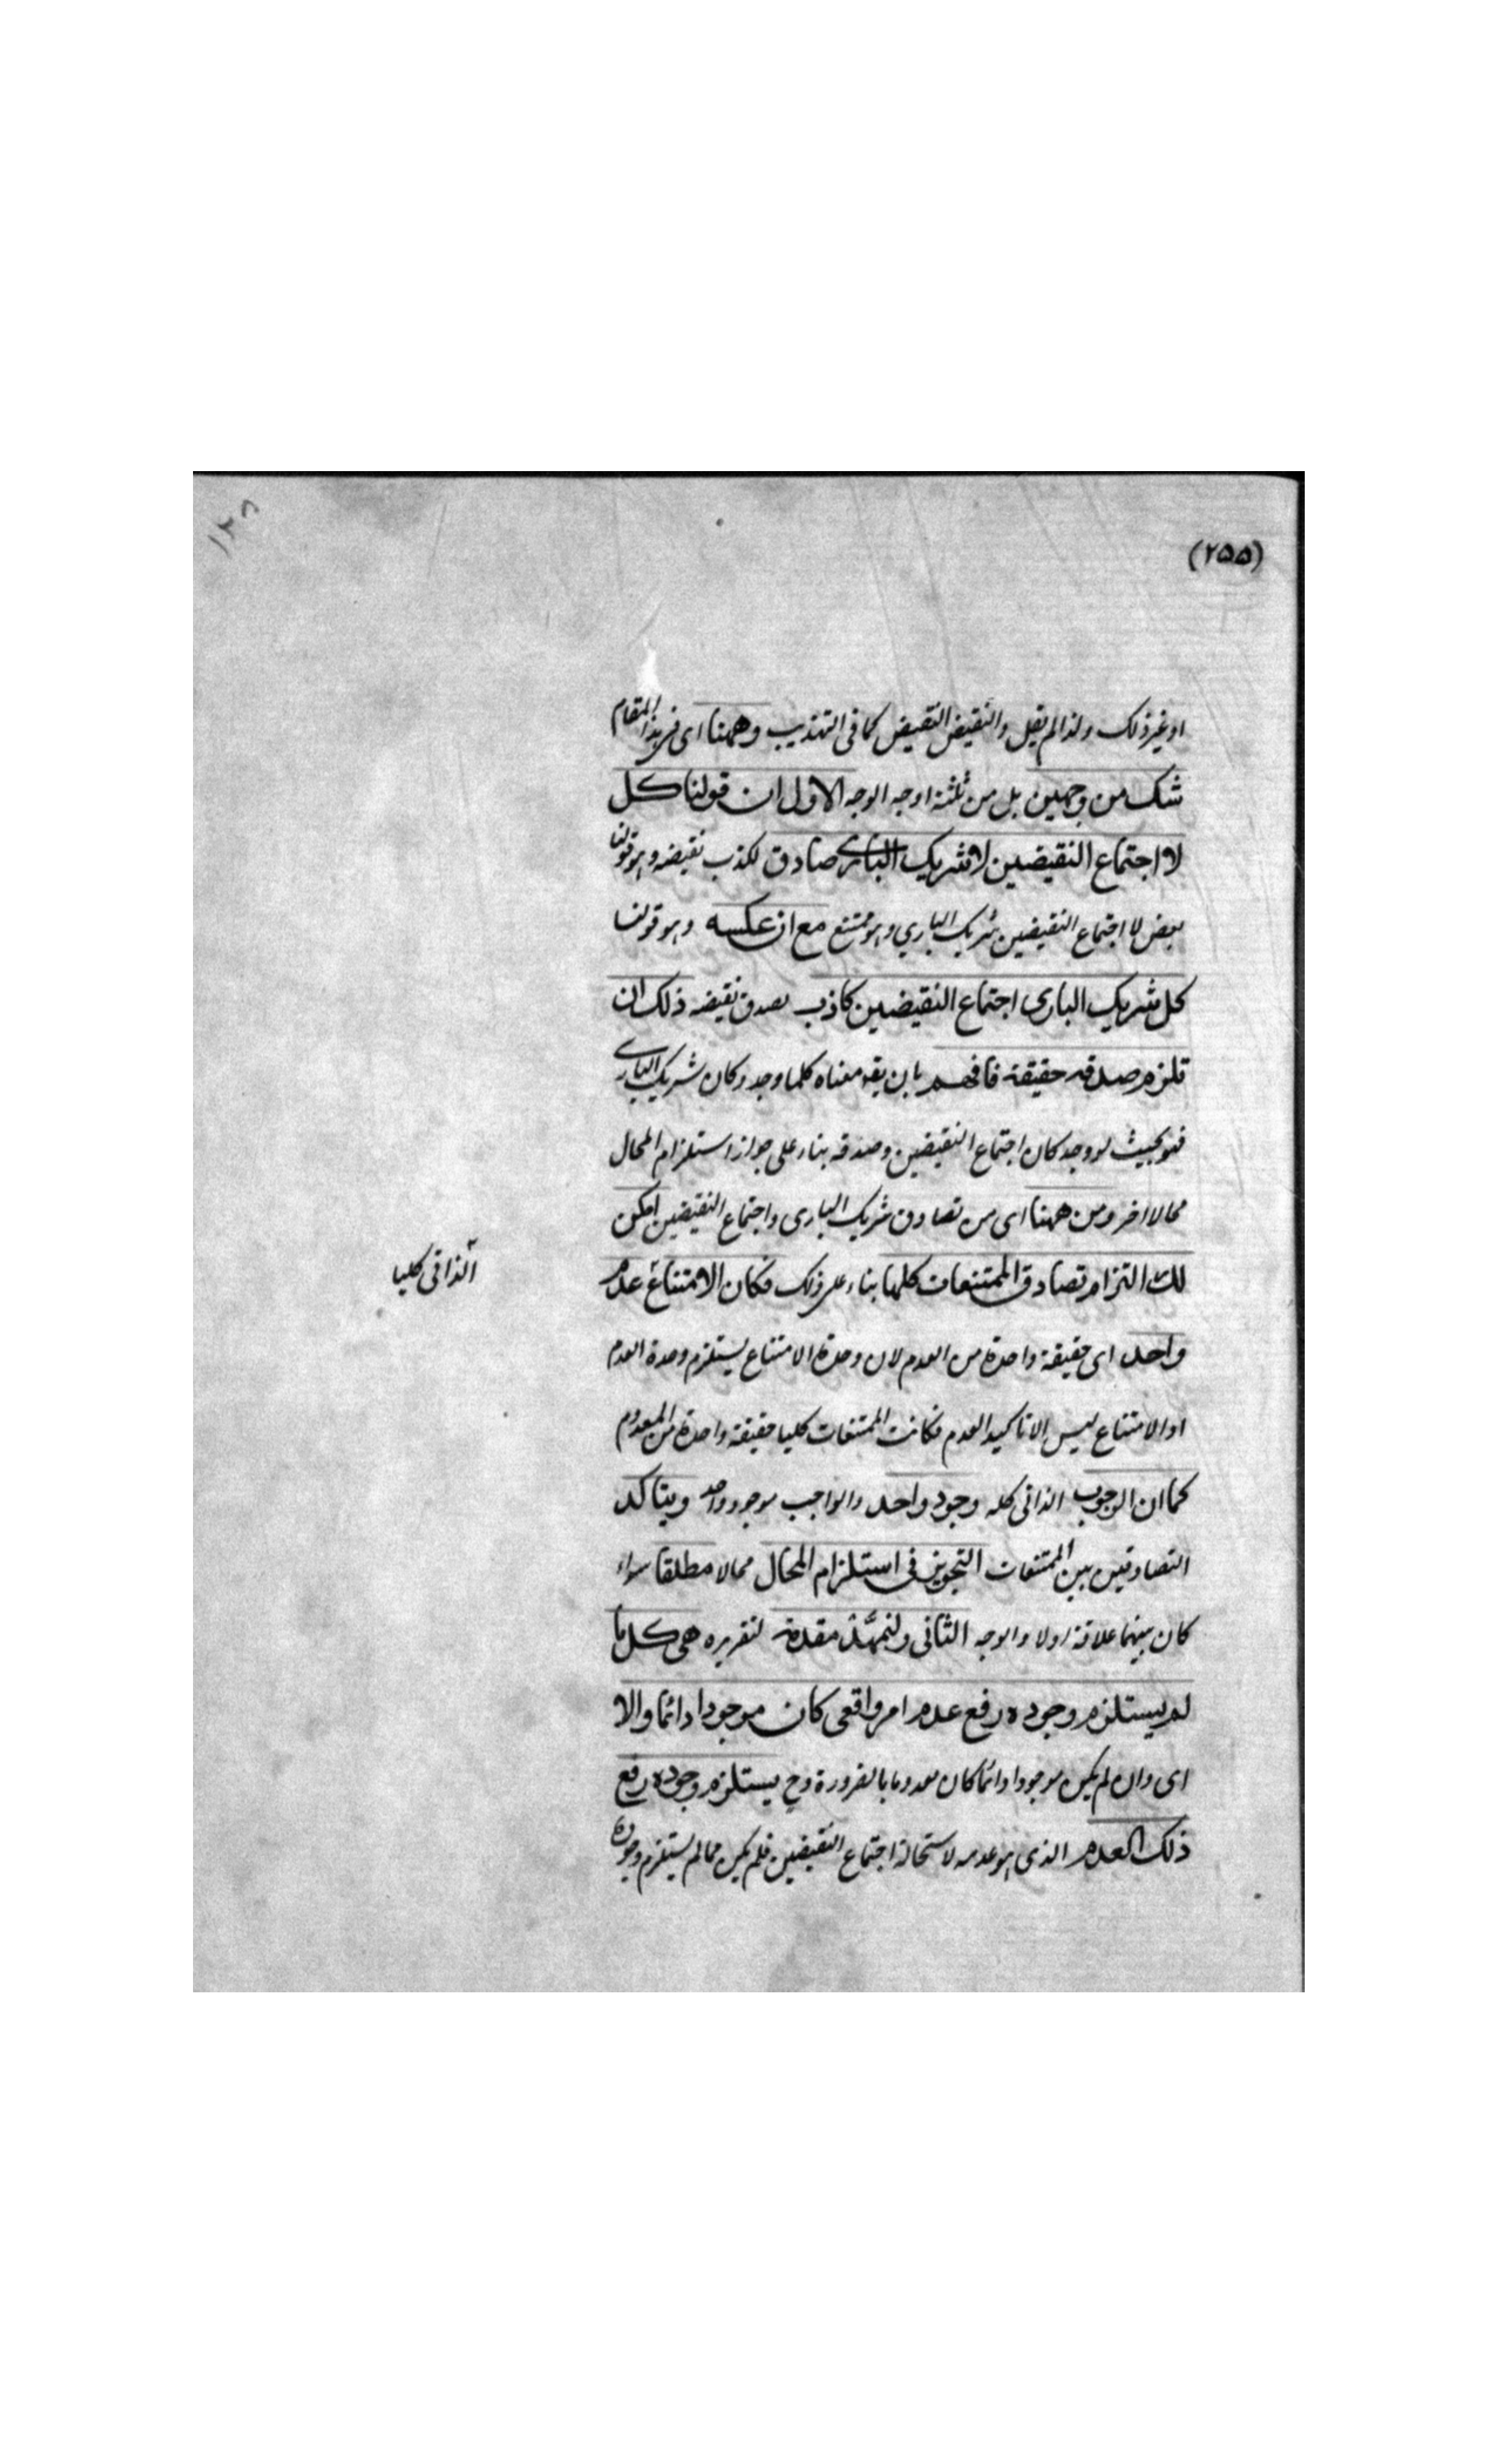 (۲۵۵)
او غیر ذلک ولذا لم یقل والنقیض النقیض کما فی التهذیب وههنا ای فی هذا المقام
شک من وجهین بل من ثلثة اوجه الوجه الاول ان قولنا کل
لا اجتماع النقیضین لا شریک الباری صادق لکذب نقیضه وهو قولنا
بعض لا اجتماع النقیضین شریک الباری وهو ممتنع مع ان عکسه وهو قولنا
کل شریک الباری اجتماع النقیضین کاذب لصدق نقیضه ذلک ان
تلزم صدقه حقیقة فافهم بان یقو معناه کلما وجد وکان شریک الباری
فهو بحیث لو وجد کان اجتماع النقیضین وصدقه بناء علی جواز استلزام المحال
محالا اخر ومن ههنا ای من تصادق شریک الباری واجتماع النقیضین امکن
لک التزام تصادق الممتنعات کلها بناء علی ذلک فکان الامتناع عدم
الذاتی کلیا
واحد ای حقیقة واحدة من العدم لان وحدة الامتناع یستلزم وحدة العدم
او الامتناع لیس الا تاکید العدم فکانت الممتنعات کلیا حقیقة واحدة من المعدوم
کما ان الوجوب الذاتی کله وجود واحد والواجب موجود واحد ویتاکد
التصادقین بین الممتنعات التجویز فی استلزام المحال محالا مطلقا سواء
کان بینهما علاقة اولا والوجه الثانی ولنمهد مقدمة لتقریره هی کل ما
لم یستلزم وجوده رفع عدم امر واقعی کان موجودا دائما والا
ای وان لم یکن موجودا دائما کان معدوما بالضرورة وح یستلزم وجوده رفع
ذلک العدم الذی هو عدمه لاستحالة اجتماع النقیضین فلم یکن مما لم یستلزم وجوده